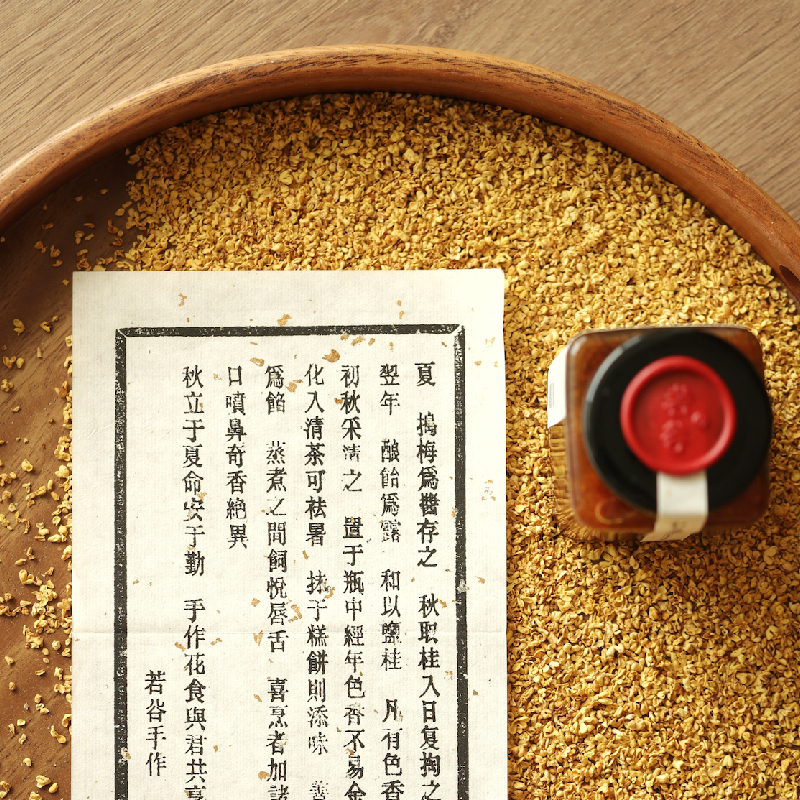 夏 搗梅爲醬存之 秋取桂入日复掏之
翌年 釀飴爲露 和以鹽桂 凡有色香
初秋采清之 置于瓶中經年色香不易金
化入清茶可祛暑 抹于糕餅則添味 善
爲餡 蒸煮之間飼悅唇舌 喜烹者加諸
口噴鼻奇香絶異
秋立于夏命安于勤 手作花食與君共享
若谷手作